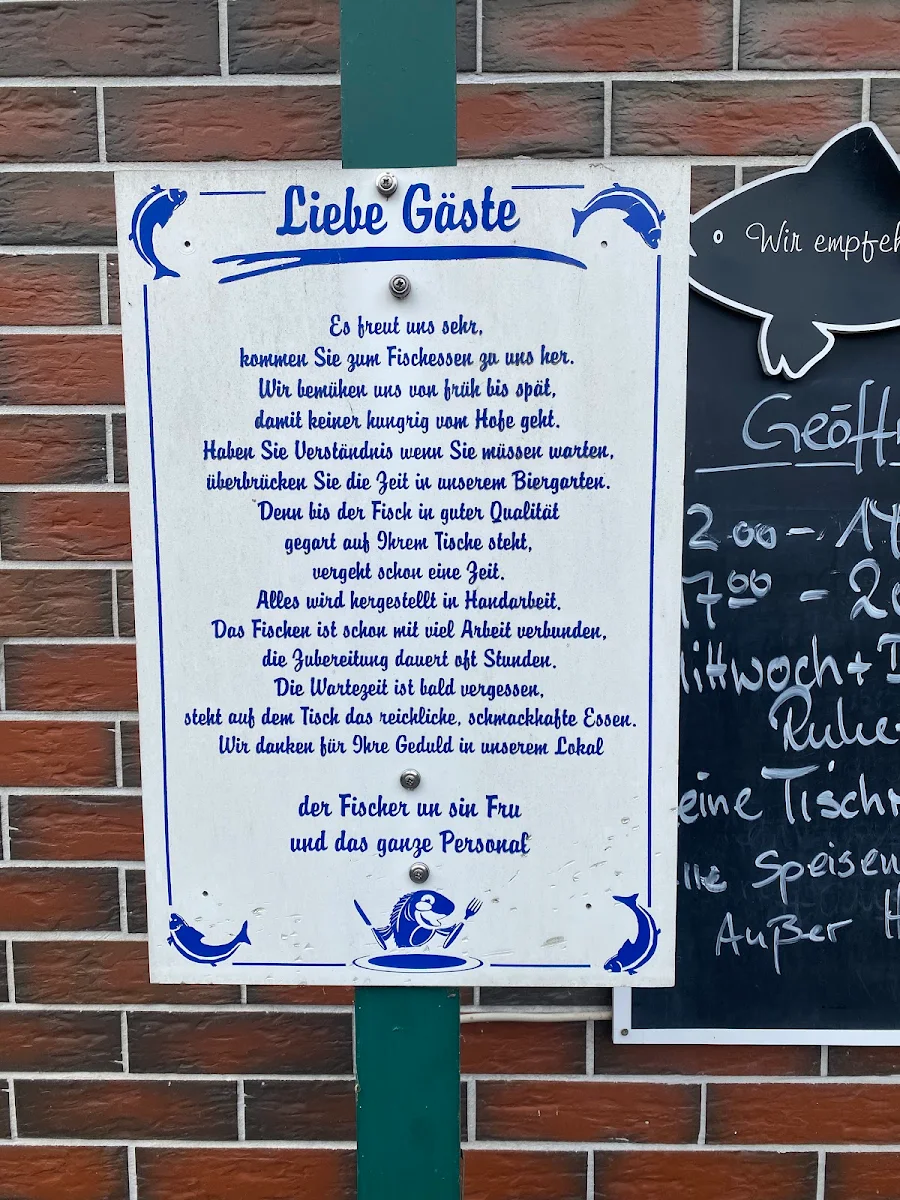 Liebe Gäste
Es freut uns sehr,
kommen Sie zum Fischessen zu uns her.
Wir bemühen uns von früh bis spät,
damit keiner hungrig vom Hofe geht.
Haben Sie Verständnis wenn Sie müssen warten,
überbrücken Sie die Zeit in unserem Biergarten.
Denn bis der Fisch in guter Qualität
gegart auf Ihrem Tische steht,
vergeht schon eine Zeit.
Alles wird hergestellt in Handarbeit.
Das Fischen ist schon mit viel Arbeit verbunden,
die Zubereitung dauert oft Stunden.
Die Wartezeit ist bald vergessen,
steht auf dem Tisch das reichliche, schmackhafte Essen.
Wir danken für Ihre Geduld in unserem Lokal
der Fischer un sin Fru
und das ganze Personal
Wir
2 00 -
17 00 -
+
Speisen
Außer